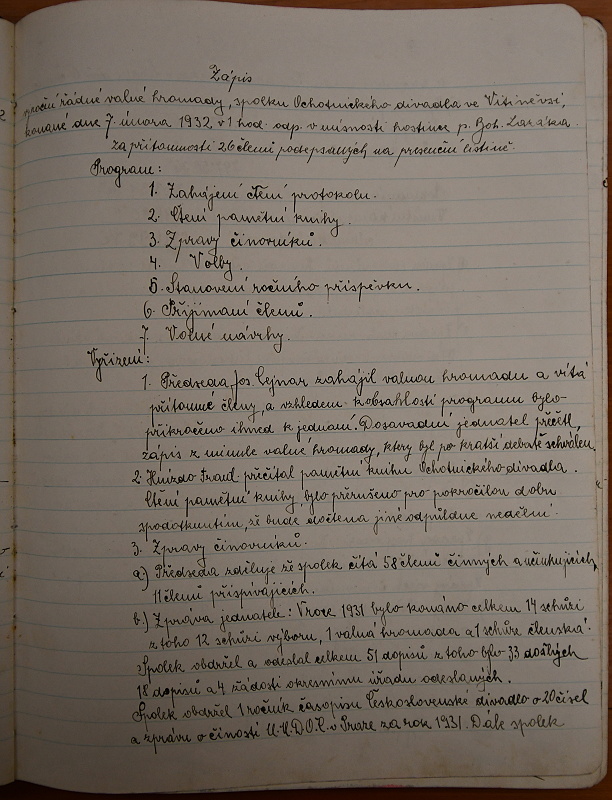 Zápis
výroční řádné valné hromady, spolku Ochotnického divadla ve Vitiněvsi,
konané dne 7. února 1932, v 1 hod. odp. v místnosti hostince p. Boh. Lazáka.
za přítomnosti 26 členů podepsaných na presenční listině.
Program:
1. Zahájení čtení protokolu.
2. Čtení pamětní knihy.
3. Zpravy činovníků.
4. Volby.
5. Stanovení ročního příspěvku.
6. Přijímaní členů.
7. Volné návrhy.
Vyřízení:
1. Předseda Jos. Cejnar zahájil valnou hromadu a vítá
přítomné členy, a vzhledem k obsáhlosti programu bylo
přikročeno ihned k jednaní. Dosavadní jednatel přečetl,
zápis z minule valné hromady, ktery byl po kratší debatě schválen.
2. Hnízdo Frant. přečítal pamětní knihu Ochotnického divadla.
Čtení pamětní knihy, bylo přerušeno pro pokročilou dobu
s podotknutím, že bude dočtena jiné odpůldne nedělní.
3. Zpravy činovníků.
a.) Předseda zděluje že spolek čítá 58 členů činných a účinkujících,
11 členů přispívajících.
b.) Zpráva jednatele: V roce 1931 bylo konáno celkem 14 schůzí
z toho 12 schůzí výboru, 1 valná hromada a 1 schůze členská.
Spolek obdržel a odeslal celkem 51 dopisů z toho bylo 33 došlých
18 dopisů a 4 žádosti okresnímu úřadu odeslaných.
Spolek obdržel 1 ročník časopisu Československé divadlo o 20 čísel
a zprávu o činosti Ú.M.D.O.Č. v Praze za rok 1931. Dále spolek